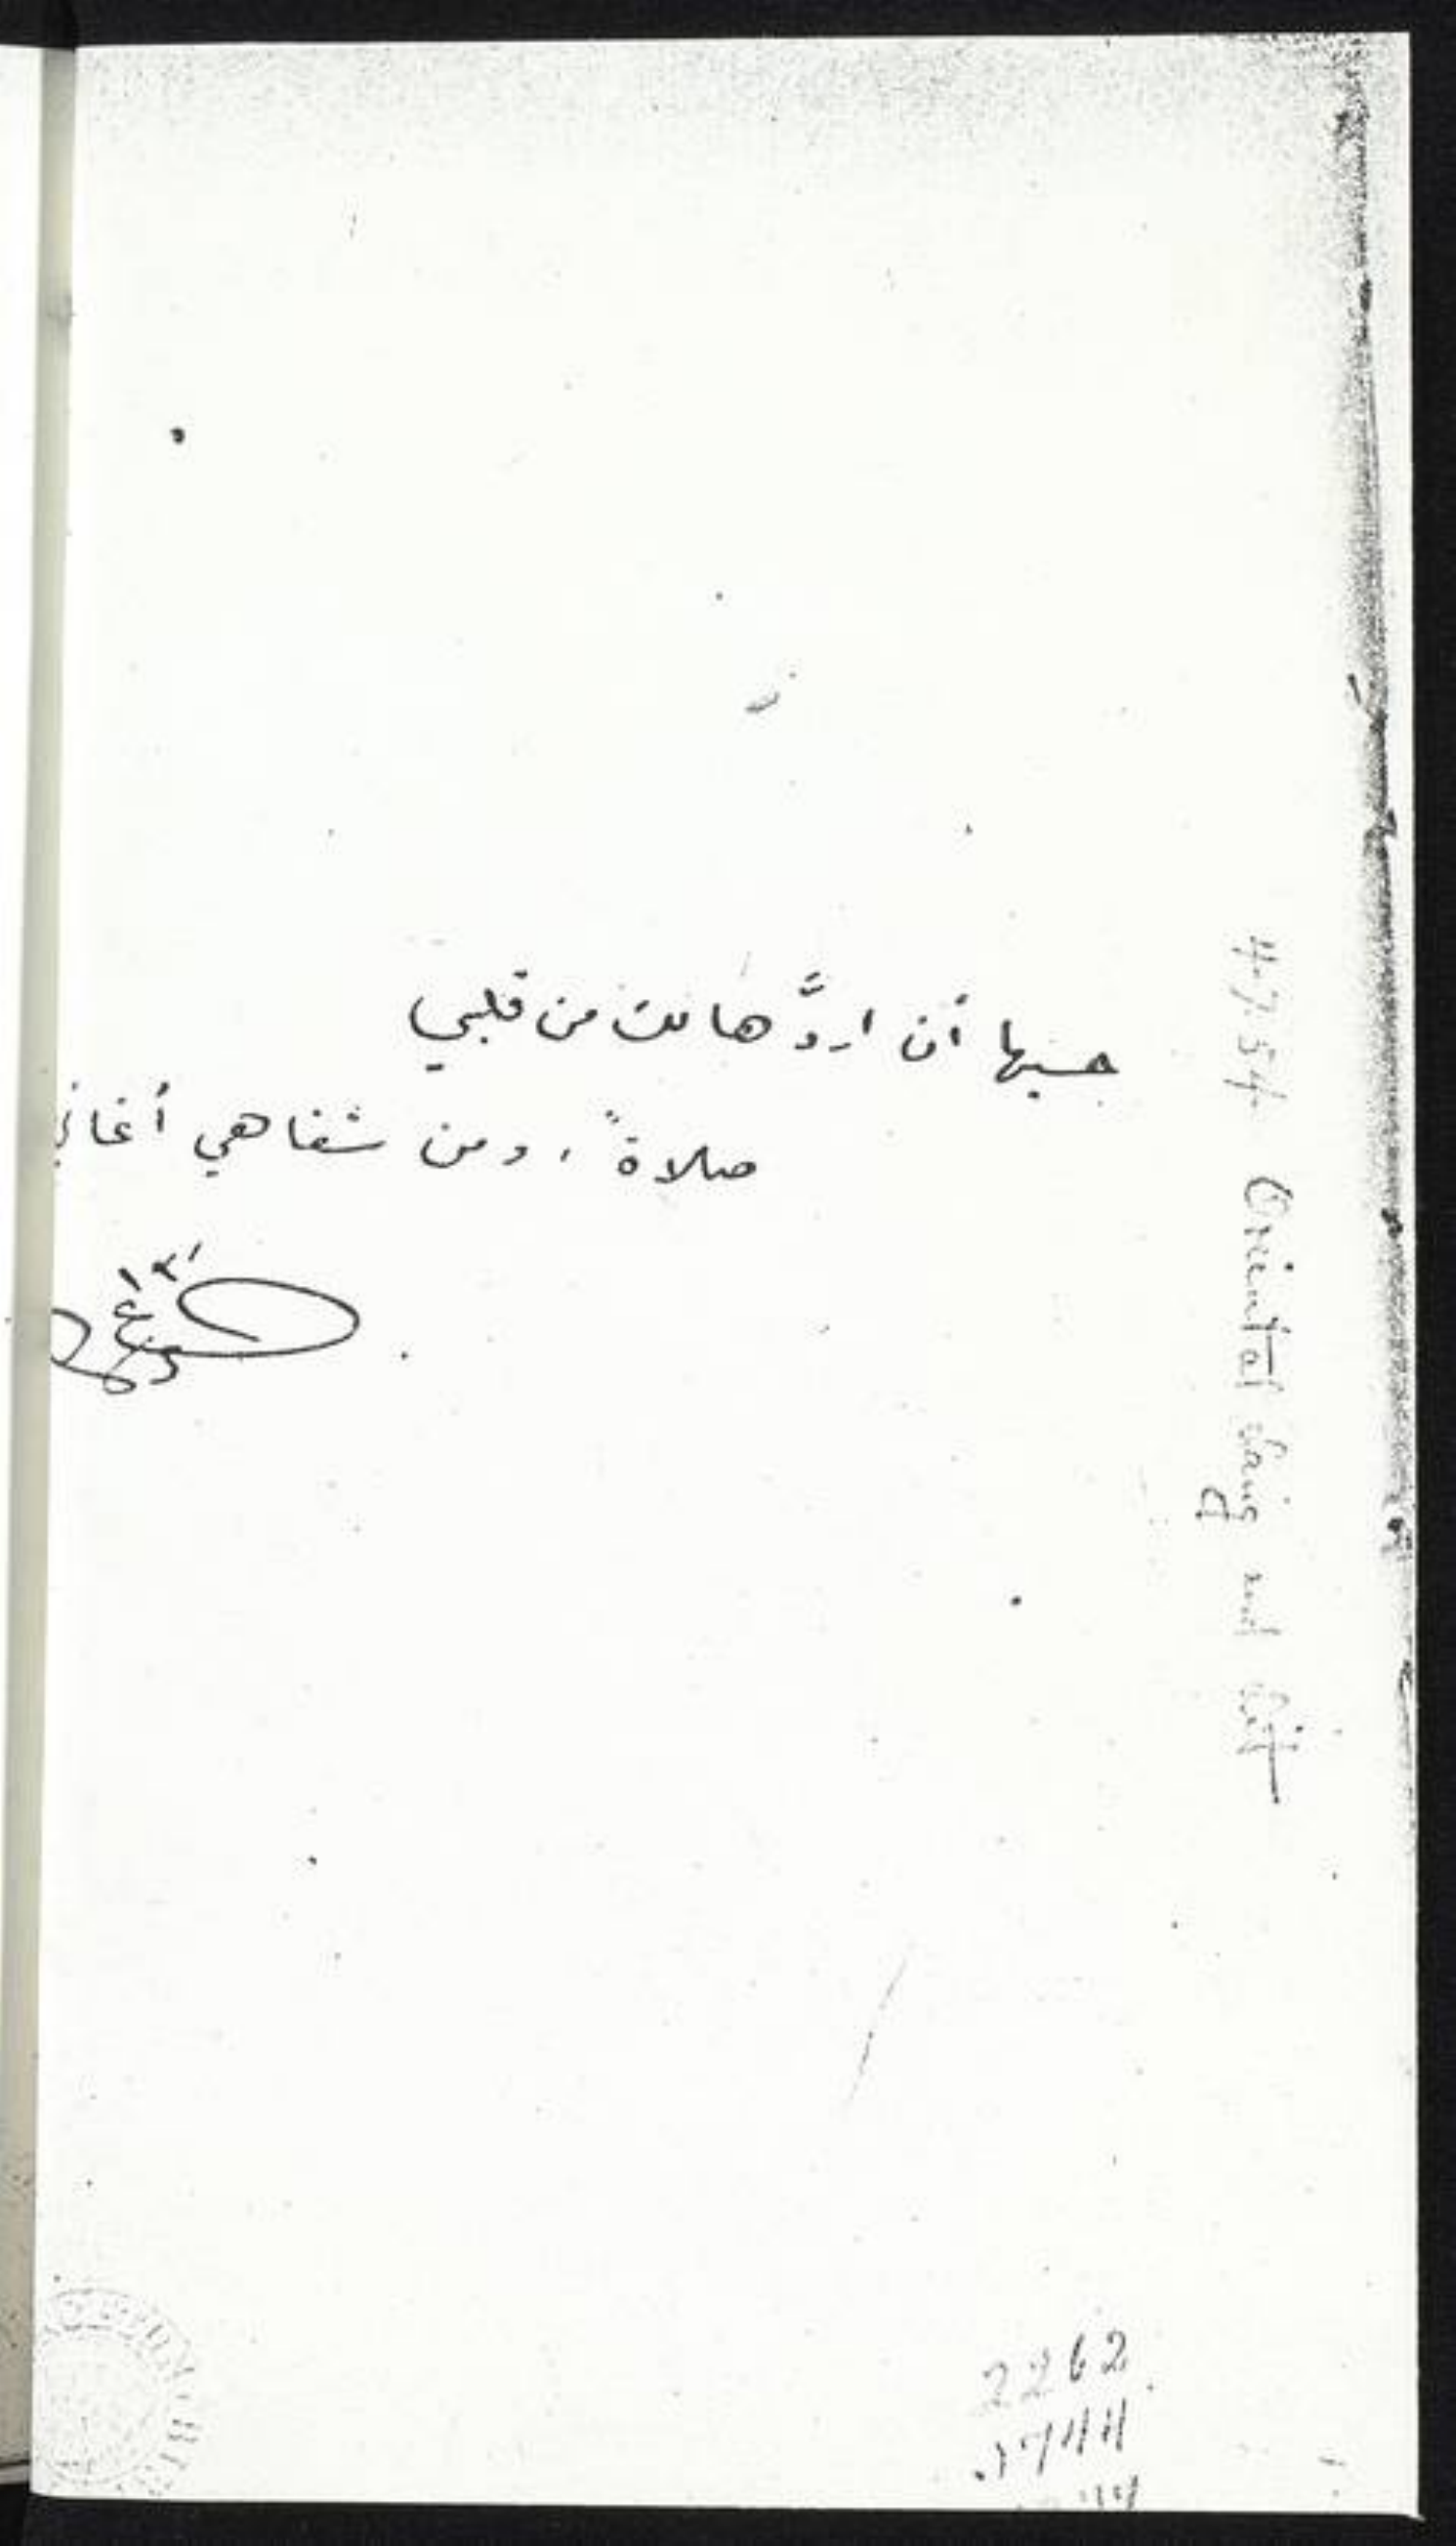 حسبها أن اردَّها لك من قلبي
صلاةً ، ومن شفاهي أغاني
4-7-54 Oriental Lang and Lit
2262
.1744